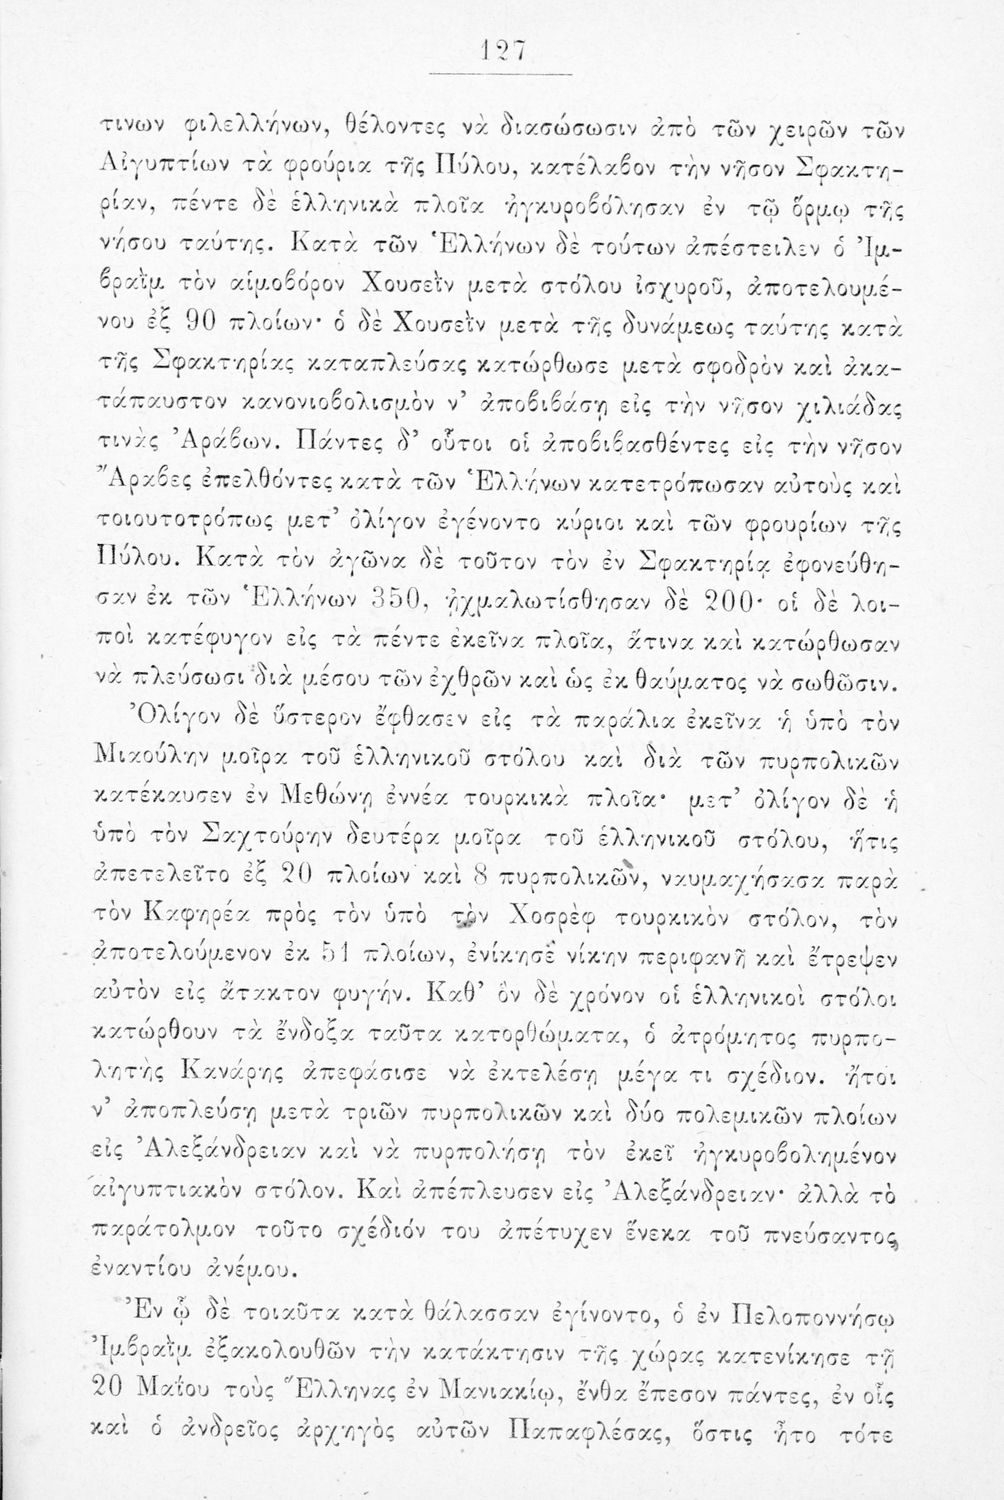 127
τινων φιλελλήνων, θέλοντες νὰ διασώσωσιν ἀπὸ τῶν χειρῶν τῶν
Αἰγυπτίων τὰ φρούρια τῆς Πύλου, κατέλαβον τὴν νῆσον Σφακτη-
ρίαν, πέντε δὲ ἑλληνικὰ πλοῖα ἠγκυροβόλησαν ἐν τῷ ὅρμῳ τῆς
νήσου ταύτης. Κατὰ τῶν Ἑλλήνων δὲ τούτων ἀπέστειλεν ὁ Ἰμ-
βραῒμ τὸν αἱμοβόρον Χουσεῒν μετὰ στόλου ἰσχυροῦ, ἀποτελουμέ-
νου ἐξ 90 πλοίων· ὁ δὲ Χουσεῒν μετὰ τῆς δυνάμεως ταύτης κατὰ
τῆς Σφακτηρίας καταπλεύσας κατώρθωσε μετὰ σφοδρὸν καὶ ἀκα-
τάπαυστον κανονιοβολισμὸν ν’ ἀποβιβάσῃ εἰς τὴν νῆσον χιλιάδας
τινὰς Ἀράβων. Πάντες δ’ οὗτοι οἱ ἀποβιβασθέντες εἰς τὴν νῆσον
Ἄραβες ἐπελθόντες κατὰ τῶν Ἑλλήνων κατετρόπωσαν αὐτοὺς καὶ
τοιουτοτρόπως μετ’ ὀλίγον ἐγένοντο κύριοι καὶ τῶν φρουρίων τῆς
Πύλου. Κατὰ τὸν ἀγῶνα δὲ τοῦτον τὸν ἐν Σφακτηρίᾳ ἐφονεύθη-
σαν ἐκ τῶν Ἑλλήνων 350, ᾐχμαλωτίσθησαν δὲ 200· οἱ δὲ λοι-
ποὶ κατέφυγον εἰς τὰ πέντε ἐκεῖνα πλοῖα, ἅτινα καὶ κατώρθωσαν
νὰ πλεύσωσι διὰ μέσου τῶν ἐχθρῶν καὶ ὡς ἐκ θαύματος νὰ σωθῶσιν.
Ὀλίγον δὲ ὕστερον ἔφθασεν εἰς τὰ παράλια ἐκεῖνα ἡ ὑπὸ τὸν
Μιαούλην μοῖρα τοῦ ἑλληνικοῦ στόλου καὶ διὰ τῶν πυρπολικῶν
κατέκαυσεν ἐν Μεθώνῃ ἐννέα τουρκικὰ πλοῖα· μετ’ ὀλίγον δὲ ἡ
ὑπὸ τὸν Σαχτούρην δευτέρα μοῖρα τοῦ ἑλληνικοῦ στόλου, ἥτις
ἀπετελεῖτο ἐξ 20 πλοίων καὶ 8 πυρπολικῶν, ναυμαχήσασα παρὰ
τὸν Καφηρέα πρὸς τὸν ὑπὸ τὸν Χοσρὲφ τουρκικὸν στόλον, τὸν
ἀποτελούμενον ἐκ 51 πλοίων, ἐνίκησε νίκην περιφανῆ καὶ ἔτρεψεν
αὐτὸν εἰς ἄτακτον φυγήν. Καθ’ ὃν δὲ χρόνον οἱ ἑλληνικοὶ στόλοι
κατώρθουν τὰ ἔνδοξα ταῦτα κατορθώματα, ὁ ἀτρόμητος πυρπο-
λητὴς Κανάρης ἀπεφάσισε νὰ ἐκτελέσῃ μέγα τι σχέδιον. ἤτοι
ν’ ἀποπλεύσῃ μετὰ τριῶν πυρπολικῶν καὶ δύο πολεμικῶν πλοίων
εἰς Ἀλεξάνδρειαν καὶ νὰ πυρπολήσῃ τὸν ἐκεῖ ἠγκυροβολημένον
αἰγυπτιακὸν στόλον. Καὶ ἀπέπλευσεν εἰς Ἀλεξάνδρειαν· ἀλλὰ τὸ
παράτολμον τοῦτο σχέδιόν του ἀπέτυχεν ἕνεκα τοῦ πνεύσαντος
ἐναντίου ἀνέμου.
Ἐν ᾧ δὲ τοιαῦτα κατὰ θάλασσαν ἐγίνοντο, ὁ ἐν Πελοποννήσῳ
Ἰμβραῒμ ἐξακολουθῶν τὴν κατάκτησιν τῆς χώρας κατενίκησε τῇ
20 Μαΐου τοὺς Ἕλληνας ἐν Μανιακίῳ, ἔνθα ἔπεσον πάντες, ἐν οἷς
καὶ ὁ ἀνδρεῖος ἀρχηγὸς αὐτῶν Παπαφλέσας, ὅστις ἦτο τότε